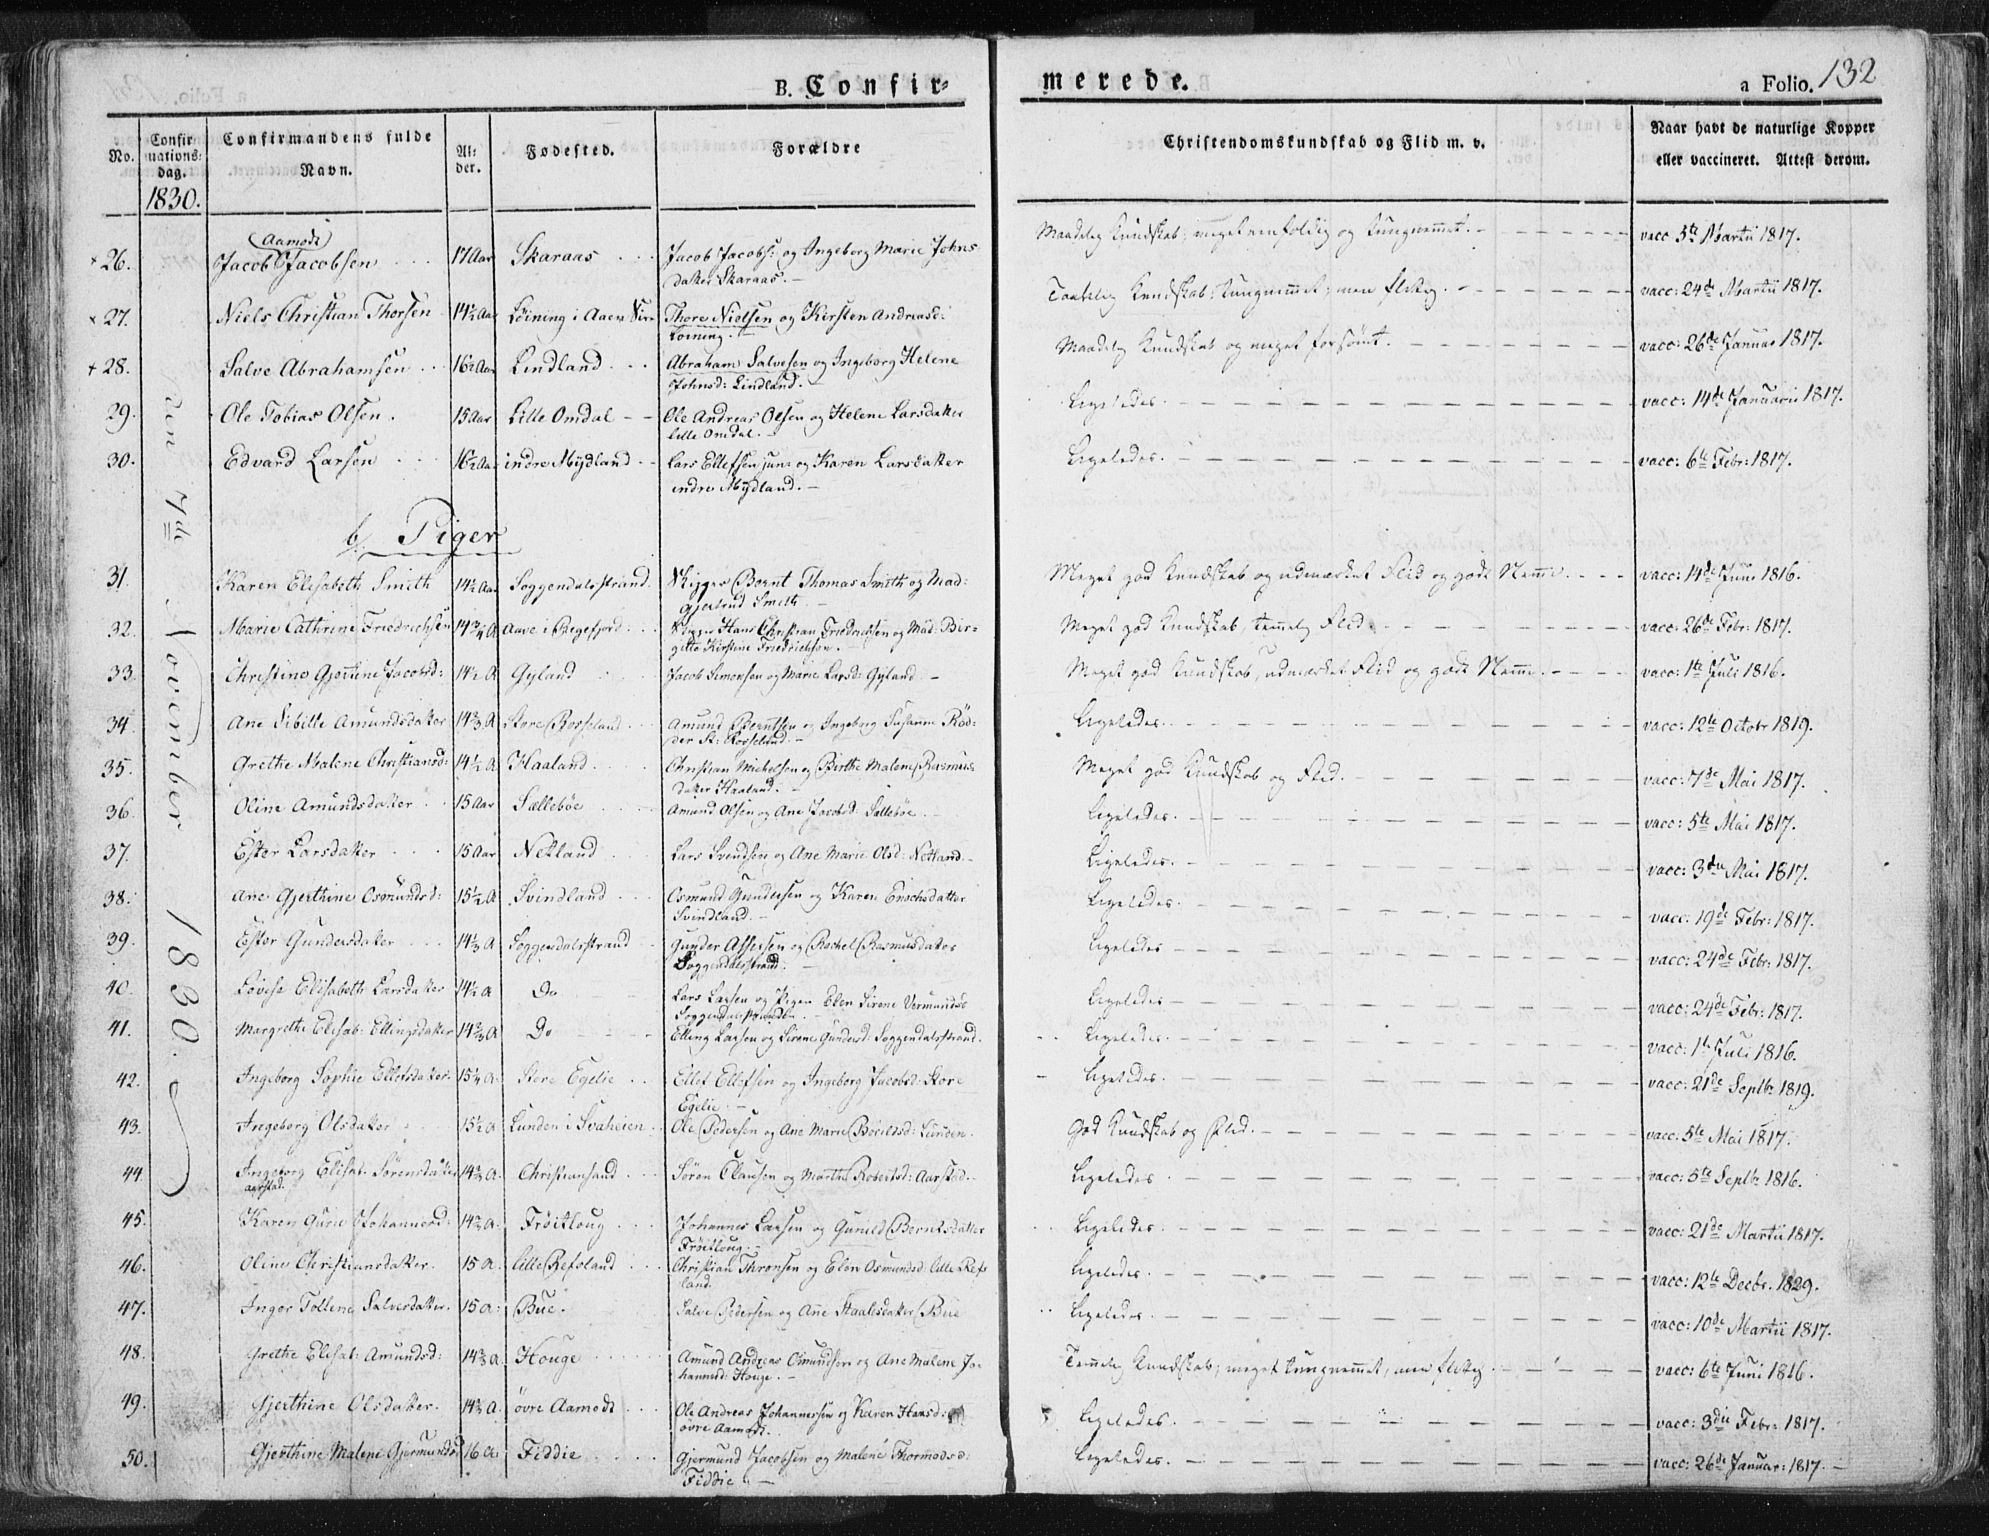 B. Confir-
merede.
a Folio. 132
No.
Confir-
mations-
dag.
1830.
Confirmandens fulde
Navn.
Al-
der.
Fødested.
Forældre
Christendomskundskab og Flid m. v.
Naar havt de naturlige Kopper
eller vaccineret. Attest derom.
den 7de November 1830.
(Aamodt)
26. Jacob Jacobsen 17 Aar Skaraas Jacob Jacobs: og Ingeborg Marie Johns Maadelig Kundskab; meget eenfoldig og tungnemmet. vacc 5te Martii 1817.
datter Skaraas.
27. Niels Christian Thorsen 14½ Aar Löining i Aaen Sire Thore Nielsen og Kirsten Andreasd: Taalelig Kundskab; tungnemmet; men flittig. vacc: 24de Martii 1817.
Löining.
28. Salve Abrahamsen 16½ Aar Lindland Abraham Salvesen og Ingeborg Helene Maadelig Kundskab og meget forsömt. vacc: 26de Januar 1817.
Johnsd: Lindland.
29. Ole Tobias Olsen. 15 Aar Lille Omdal Ole Andreas Olsen og Helene Larsdatter Ligeledes. vacc: 14de Januarii 1817.
lille Omdal.
30. Edvard Larsen 16½ Aar indre Mydland Lars Ellefsen jun: og Karen Larsdatter Ligeledes. vacc: 6te Febr: 1817.
indre Mydland.
b/ Piger
31. Karen Elisabeth Smith 14½ Aar Soggendalsstrand. Skipper Bernt Thomas Smith og Mad: Meget god Kundskab og udmærket Flid og godt Nemme. vacc: 14de Juni 1816.
Gjertrud Smith.
32. Marie Cathrine Friedrichsen 14¾ A Aave i Regefjord: Skipper Hans Christian Friedrichsen og Mad: Bir- Meget god Kundskab, temmelig Flid. vacc: 26de Febr: 1817.
gitte Kirstine Friedrichsen.
33. Christine Gjertine Jacobsd: 14½ A Gyland Jacob Simonsen og Marie Larsd: Gyland Meget god Kundskab, udmærket Flid og godt Nemme. vacc: 1te Juli 1816.
34. Ane Sibille Amundsdatter 14⅔ A Store Rosseland Amund Berntsen og Ingeborg Susanne Röd- Ligeledes. vacc: 12te Octobr 1819.
der St: Rosseland.
35. Grethe Malene Christiansd: 14½ A Haaland Christian Michelsen og Birthe Malene Rasmus Meget god Kundskab og Flid. vacc: 7de Mai 1817.
datter Haaland.
36. Oline Amundsdatter 15 Aar Sællebøe Amund Olsen og Ane Jacobsd: Sællebøe Ligeledes. vacc: 5te Mai 1817.
37. Ester Larsdatter 15 Aar Netland Lars Svendsen og Ane Marie Olsd: Netland. Ligeledes. vacc: 3die Mai 1817.
38. Ane Gjerthine Osmundsd: 15½ A Svindland Osmund Gundersen og Karen Enochsdatter Ligeledes. vacc: 19de Febr: 1817.
Svindland.
39. Ester Gundersdatter 14⅓ A Soggendalsstrand Gunder Assersen og Rachel Rasmusdatter Ligeledes vacc: 24de Febr: 1817.
Soggendalsstrand.
40. Lovise Elisabeth Larsdatter 14½ A Do Lars Larsen og Pigen Elen Sirene Vermundsd Ligeledes vacc: 24de Febr: 1817.
Soggendalsstrand.
41. Margrethe Elisab: Ellingsdatter 14⅔ A Do Elling Larsen og Sirene Gundersd: Soggendalsstrand. Ligeledes. vacc: 1te Juli 1816.
42. Ingeborg Sophie Ellefsdatter. 15¼ A: Store Egelie Ellef Ellefsen og Ingeborg Jacobsd: Store Ligeledes. vacc: 21de Septbr 1819.
Egelie.
43. Ingeborg Olsdatter 15½ A Lunden i Svaheien Ole Pedersen og Ane Marie Böeildsd: Lunden. God Kundskab og Flid. vacc: 5te Mai 1817.
44. Ingeborg Elisab: Sörensdatter 14⅔ A. Christiansand Sören Clausen og Marthe Robertsd: Aarstad. Ligeledes vacc: 5te Septbr 1816.
Aarstad.
45. Karen Gurie Johannesd: 14⅔ A. Fröitloug Johannes Larsen og Gunild Berntsdatter Ligeledes. vacc: 21de Martii 1817.
Fröitloug.
46. Oline Christiansdatter. 15 A. Lille Refsland Christian Thronsen og Elen Osmundsd: lille Refs Ligeledes. vacc: 12te Decbr. 1829.
land.
47. Inger Tollene Salvesdatter. 15 A: Bue. Salve Pedersen og Ane Staalesdatter Bue Ligeledes. vacc: 10de Martii 1817.
48. Grethe Elisab: Amundsd: 14⅔ A. Houge Amund Andreas Osmundsen og Ane Malene Jo- Temmelig Kundskab; meget tungnemmet, men flittig. vacc: 6te Juni 1816.
hannesd: Houge.
49. Gjerthine Olsdatter. 14⅔ A. övre Aamodt Ole Andreas Johannessen og Karen Hansd: Ligeledes. vacc: 3die Febr: 1817.
övre Aamodt.
50. Gjerthine Malene Gjermundsd 16 A: Fiddie Gjermund Jacobsen og Malene Thormodsd: Ligeledes. vacc: 26de Januar: 1817.
Fiddie.